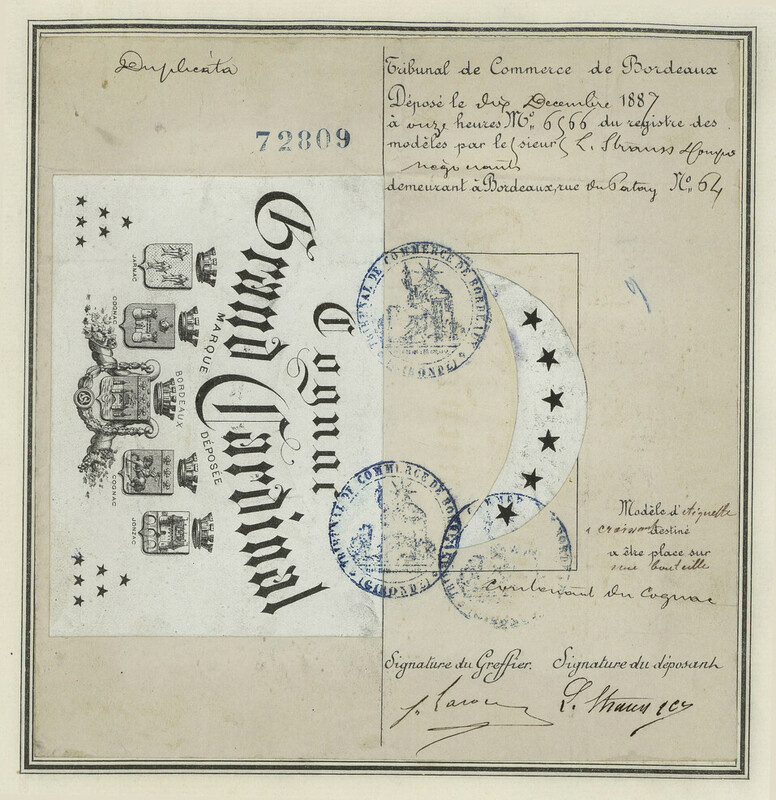 Duplicata
72809
Tribunal de Commerce de Bordeaux
Déposé le dix Decembre 1887
à onze heures Nº 6566 du registre des
modèles par le sieur L. Strauss &
negociants
demeurant à Bordeaux, rue du Patay Nº 64
Cognac
Grand Cardinal
MARQUE DÉPOSÉE
JARNAC
COGNAC
BORDEAUX
COGNAC
JONZAC
TRIBUNAL DE COMMERCE DE BORDEAUX
(GIRONDE)
TRIBUNAL DE COMMERCE DE BORDEAUX
(GIRONDE)
Modèle d'étiquette
croissant destiné
a être place sur
une bouteille
Contenant du Cognac
Signature du Greffier.
Signature du déposant
L. Strauss